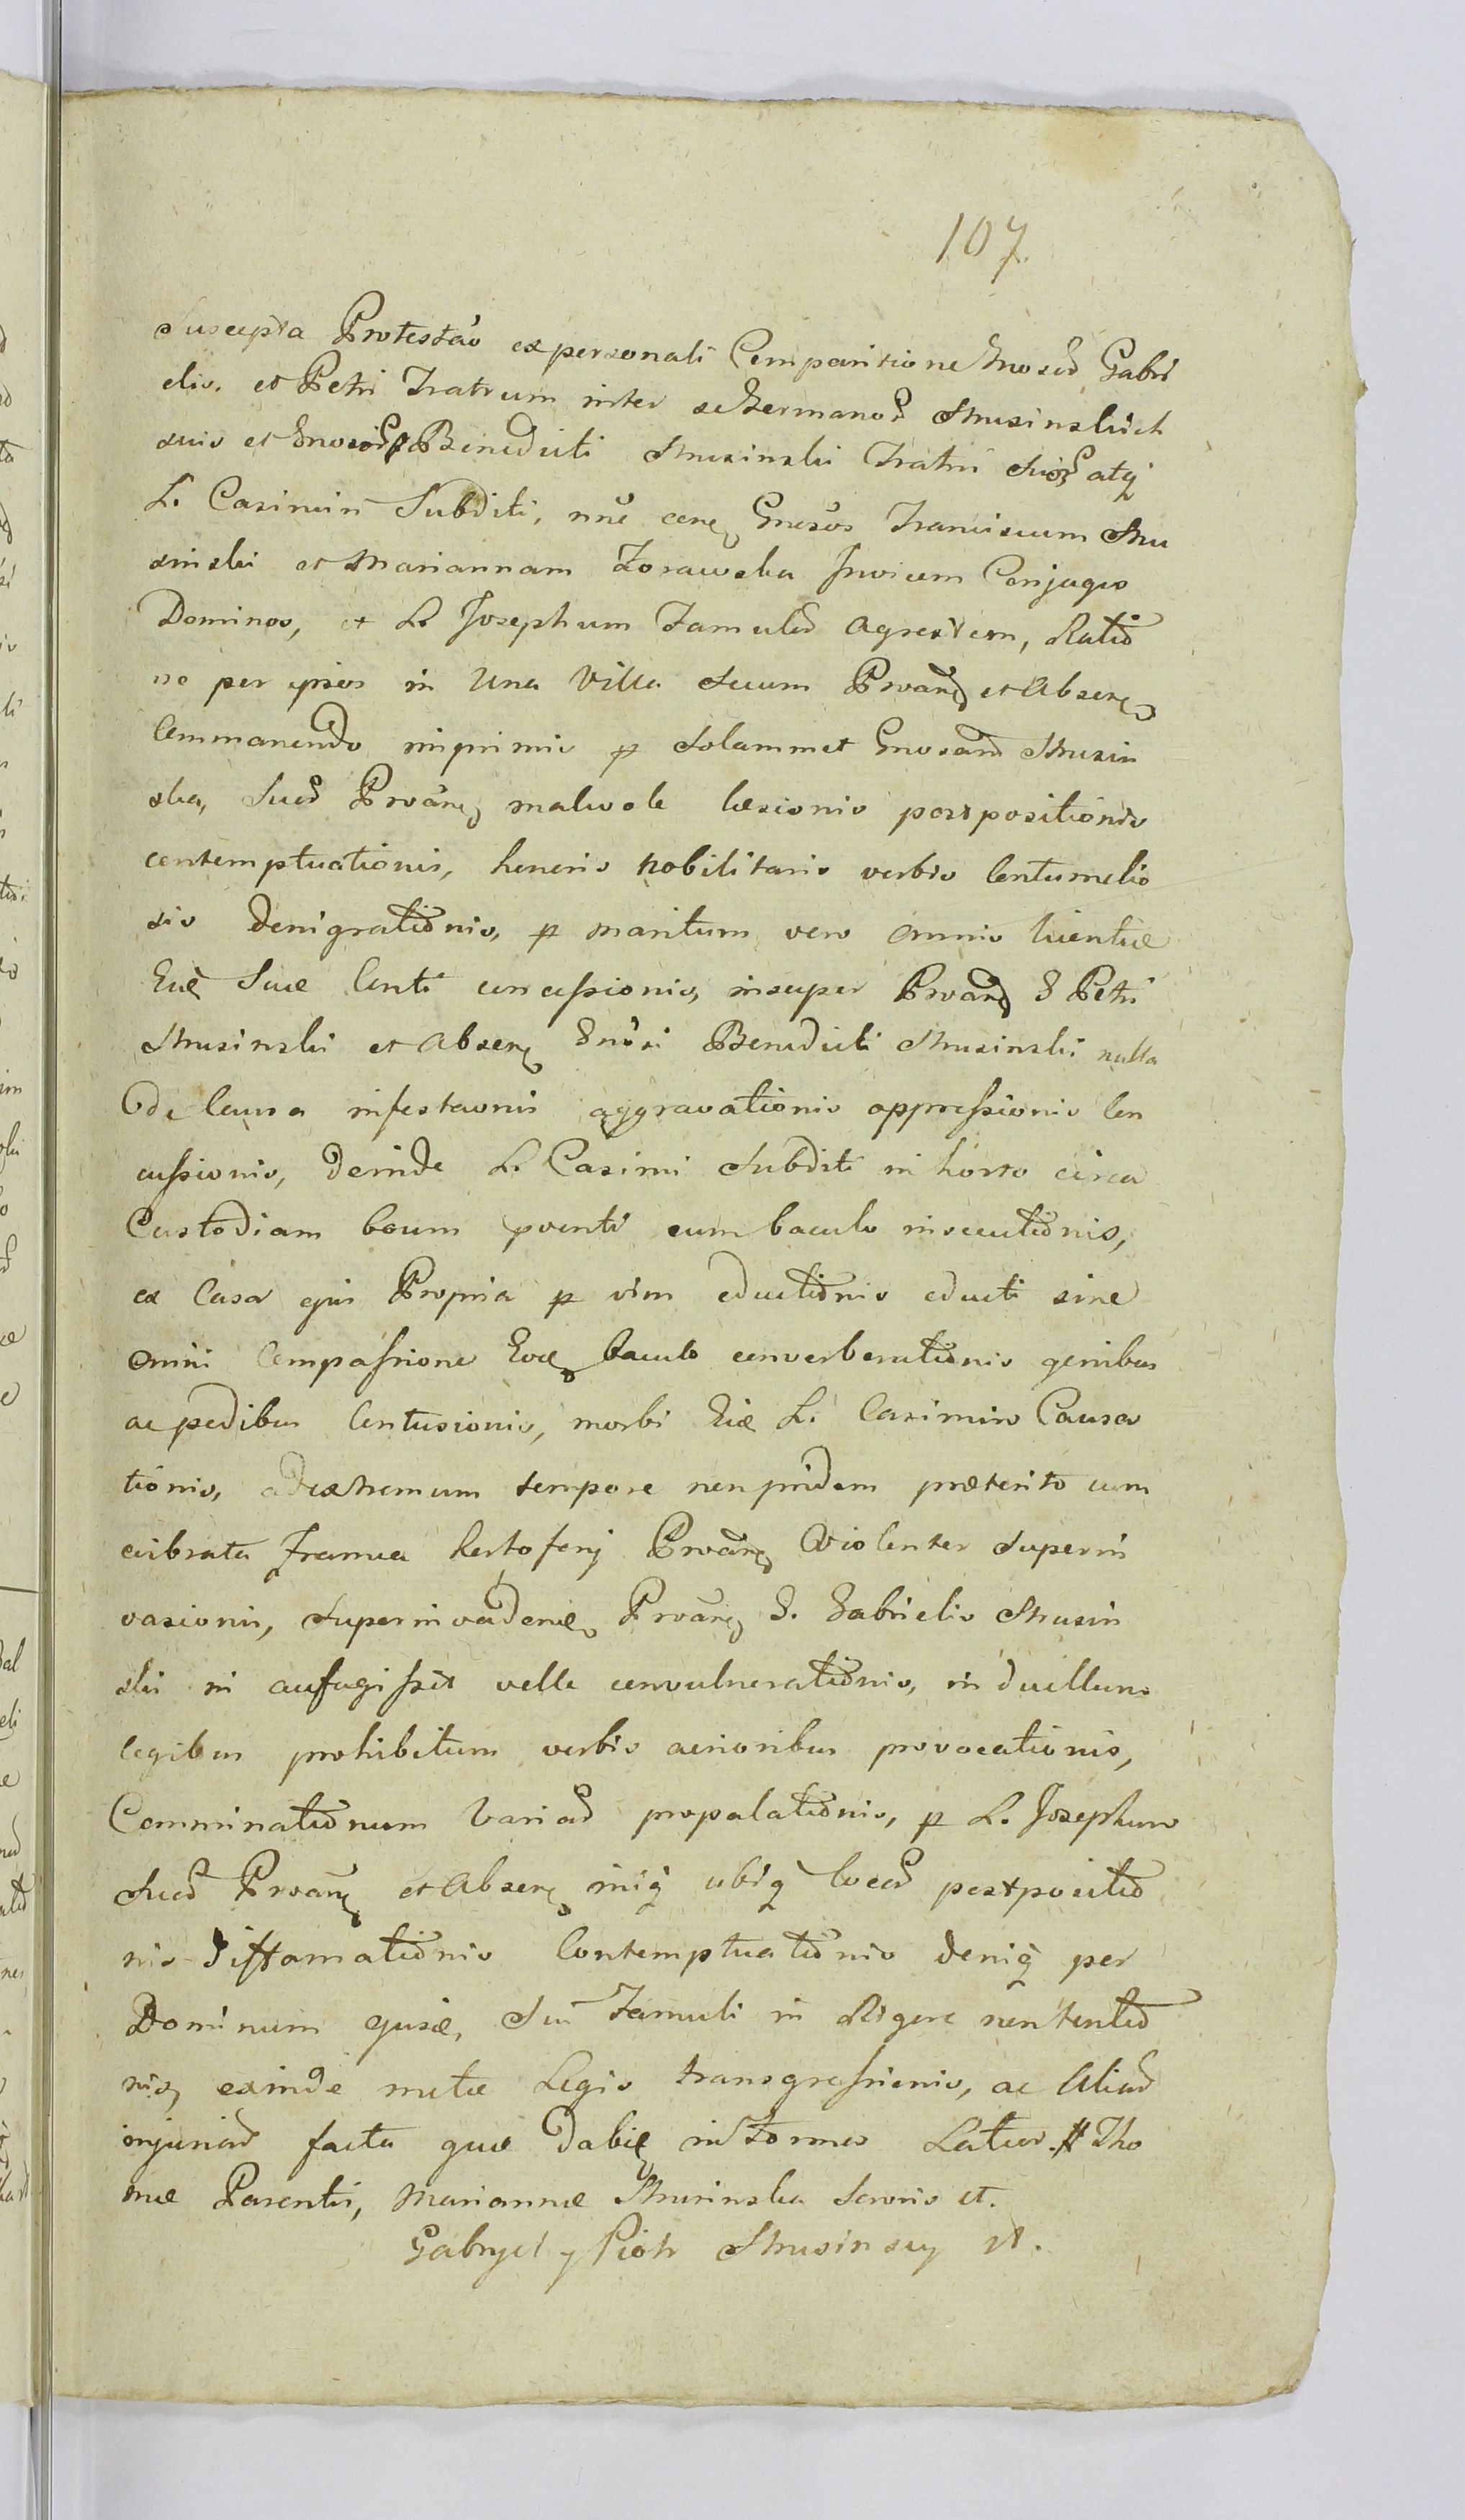 107.
Suscepta Protestão ex personali Comparitione Gnosod Gabri
elis. et Petri Fratrum inter se Germanod Strusinskich
suis et Benedicti Strusinski Fratri atq
L. Casimiri Subditi, nñe Gnosos Franciscum Stru
sinski et Mariannam Zorawska Invicem Conjuges
Dominos, et L. Josephum Famulũ agrestem, Ratiõ
ne per ipsos in Una Villa Secum et Absen
Commanendo inprimis p Solammet Gnosam Strusin
ska, Suod malevole læsionis postpositionis
contemptuationis, honoris Nobilitaris verbis Contumelio
sis Denigrationis, p maritum vero omnis
Suæ concussionis, insuper G Petri
Strusinski et Absen Gnõsi Benedicti Strusinski nulla
de Causa infestaonis aggravationis oppressionis Con
cussionis, Deinde L. Casimi Subditi in horto circa
Custodiam boum cum baculo insecutionis,
ex Casa ejus Propria p vim eductionis educti sine
omni Compassione baculo converberationis genibus
ac pedibus Contusionis, morbi L. Casimiro Causa
tionis, ad extremum tempore non pridem præterito cum
vibrata framea violenter Superin
vasionis, G. Gabrielis Strusin
ski ni aufugisset velle convulnerationis, in duellum
legibus prohibitum verbis acrioribus provocationis,
Comminationum Variad propalationis, p L. Josephum
Suod et Absen ubiq locod
nis Diffamationis Contemptuationis deniq per
Dominum Sui Famuli in Rigore
exinde Legis transgressionis, ac Aliad
injuriad facta quæ Lator Tho
mæ Parentis, Mariannæ Strusinska et.
Gabryel y Piotr Strusinscy